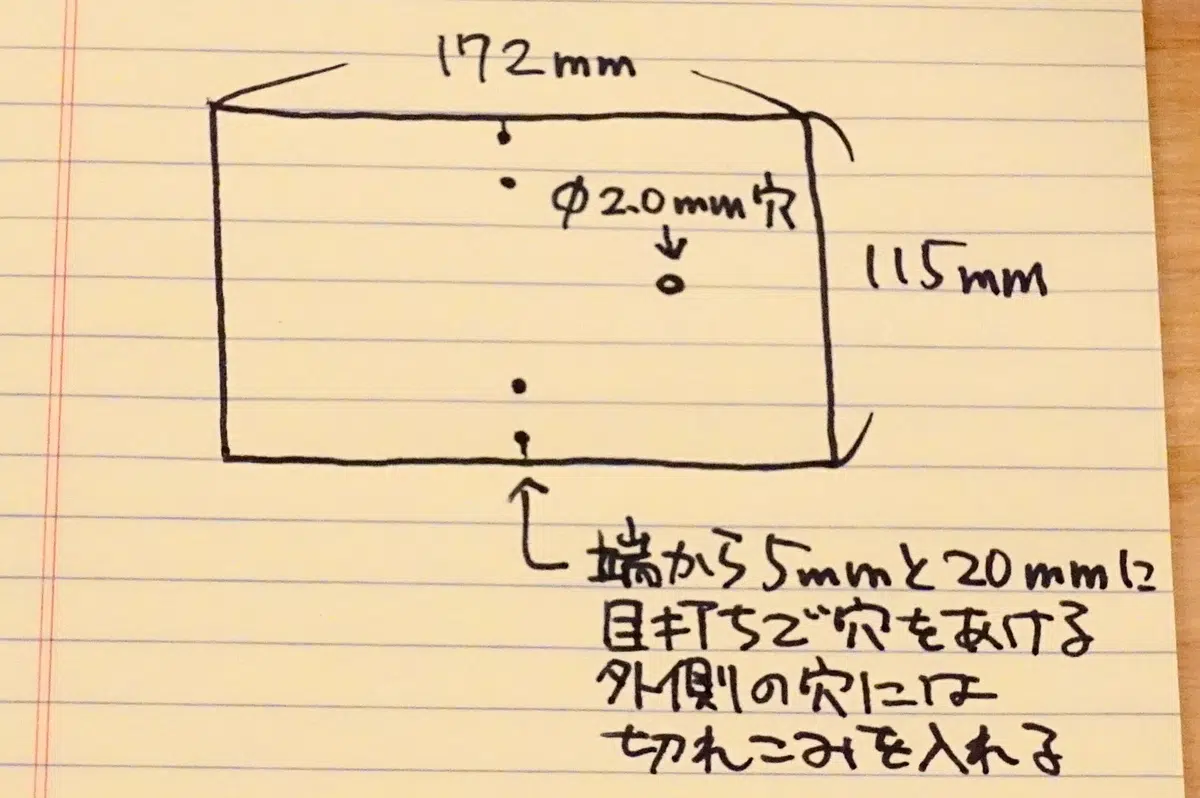 172mm
φ2.0mm穴
115mm
端から5mmと20mmに
目打ちで穴をあける
外側の穴には
切れこみを入れる